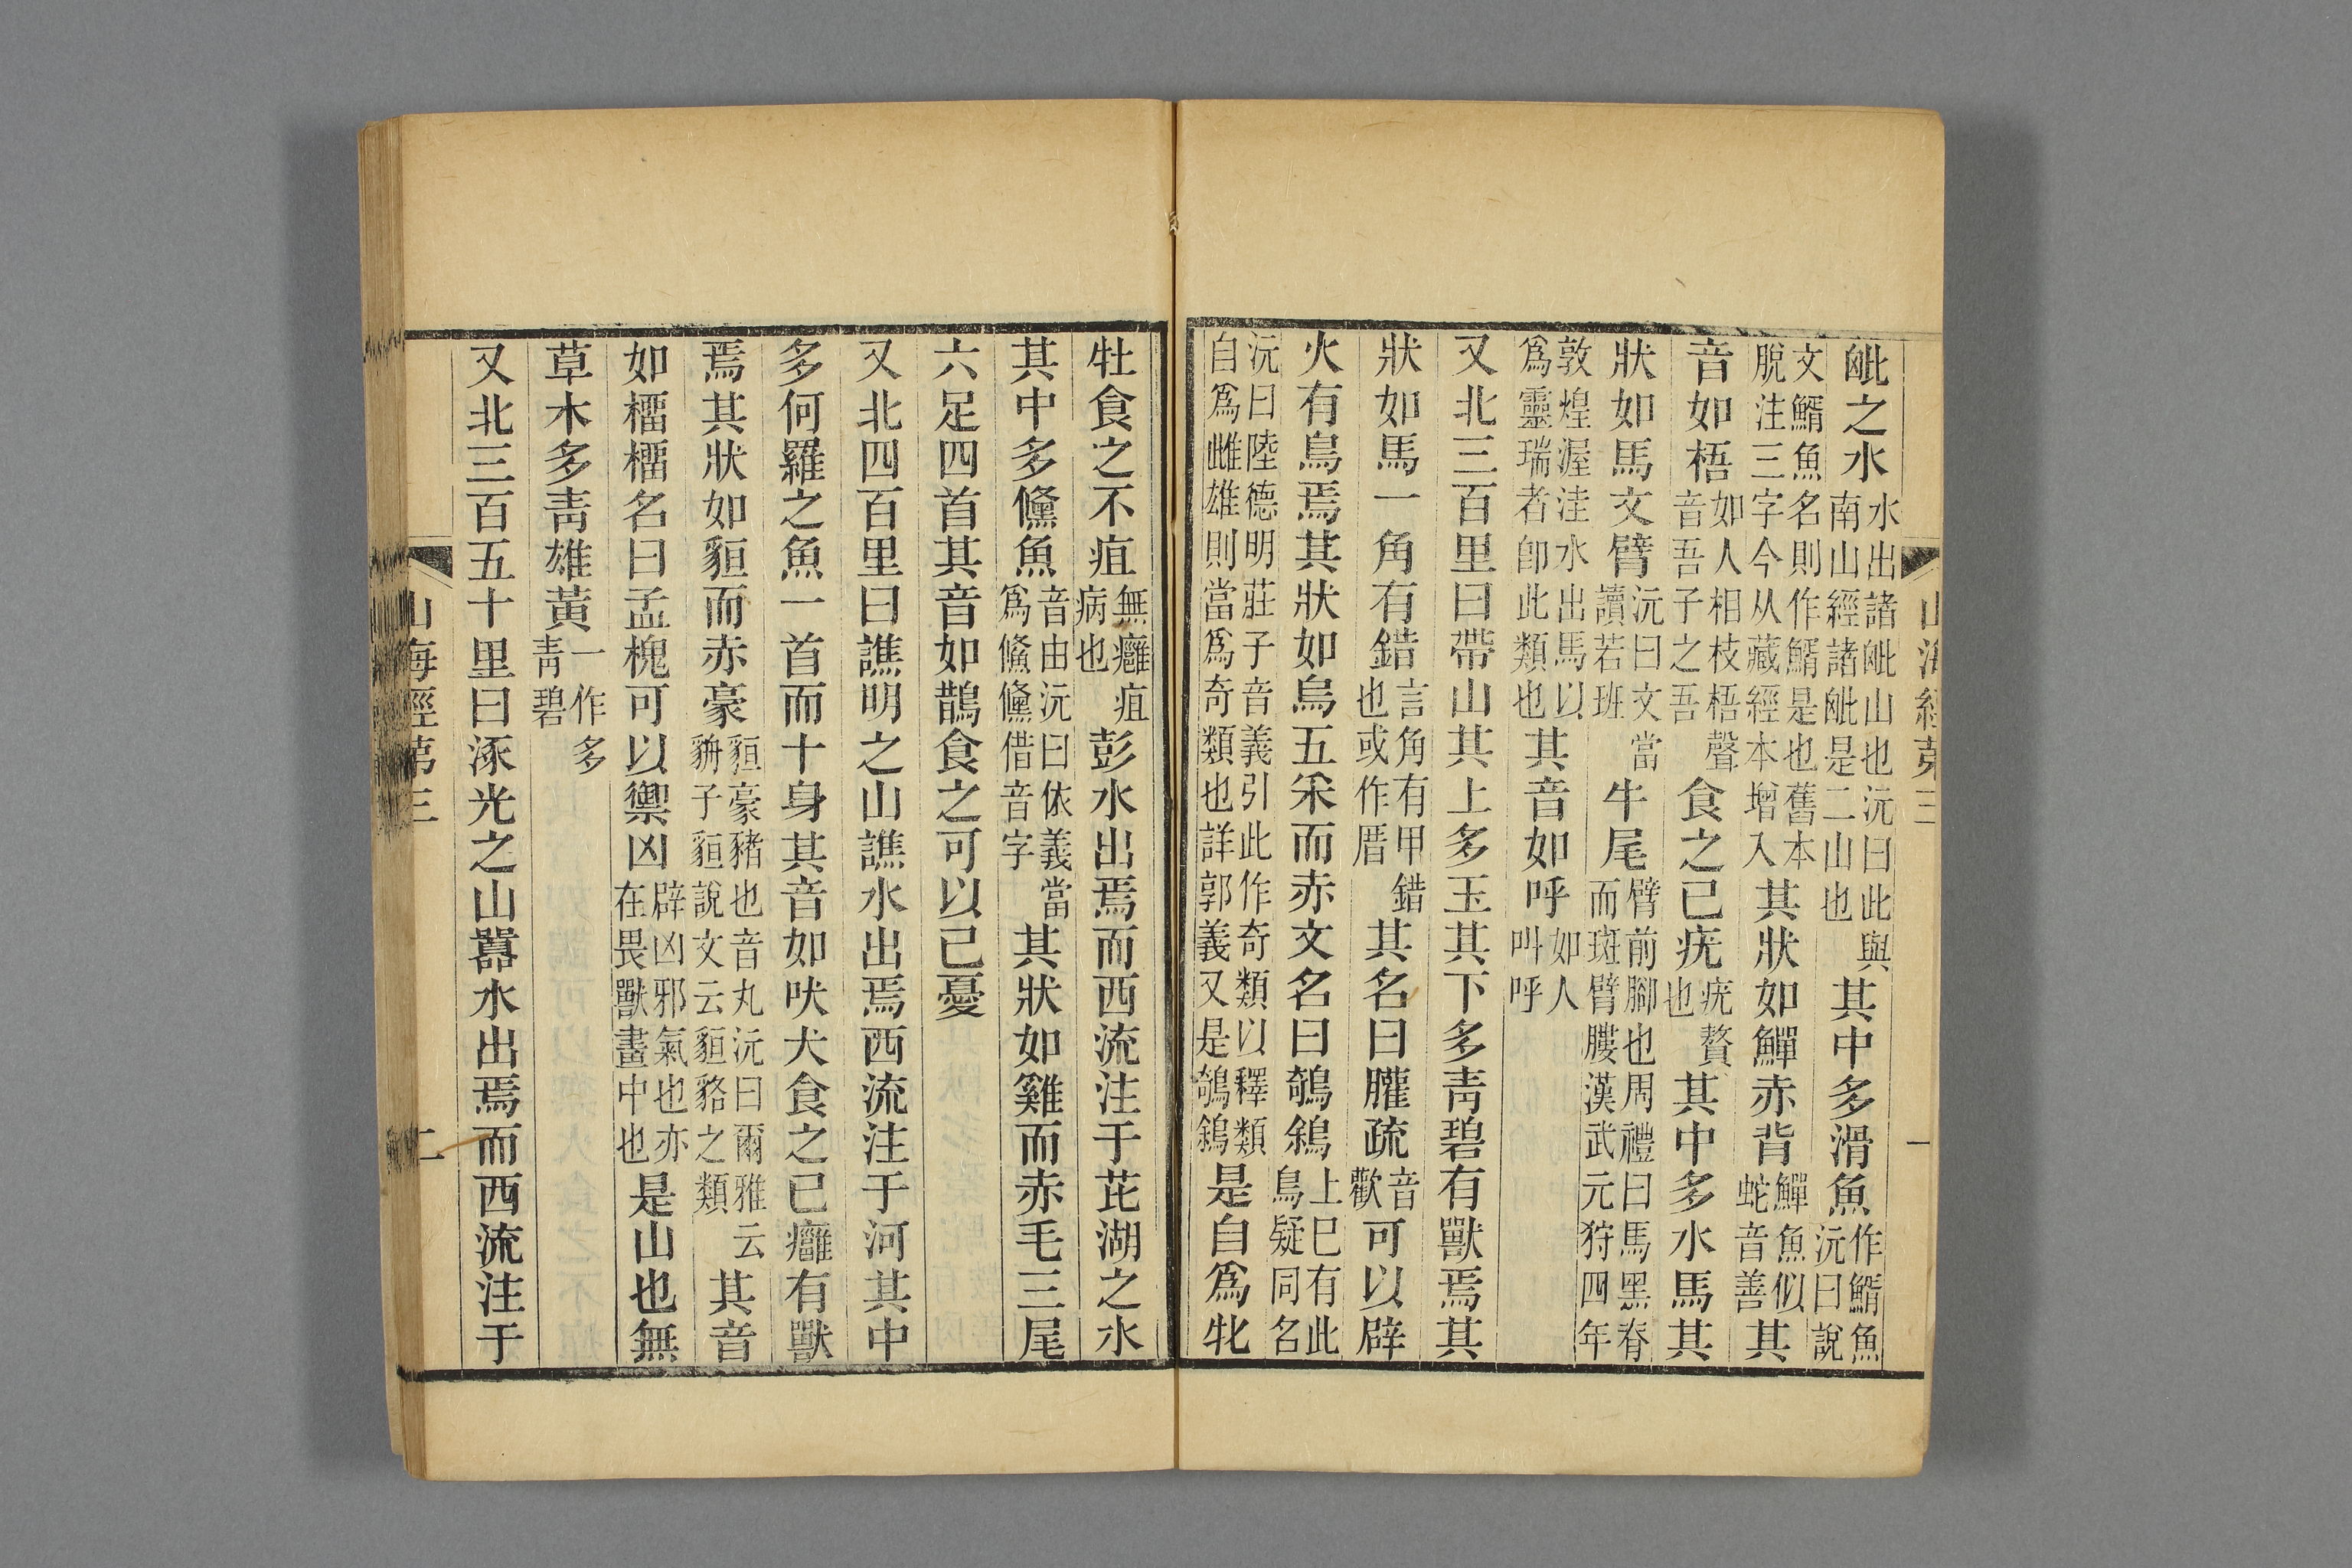 山海經第三
一
毗之水水出諸毗山也沅曰此與南山經諸毗是二山也其中多滑魚作䱬魚沅曰說
文䱬魚名則作䱬是也舊本脫注三字今从藏經本增入其狀如鱓赤背鱓魚似蛇音善其
音如梧如人相枝梧聲音吾子之吾食之已疣疣贅也其中多水馬其
狀如馬文臂沅曰文當讀若班牛尾臂前腳也周禮曰馬黑脊而斑臂膢漢武元狩四年
敦煌渥洼水出馬以爲靈瑞者卽此類也其音如呼如人叫呼
又北三百里曰帶山其上多玉其下多靑碧有獸焉其
狀如馬一角有錯言角有甲錯也或作厝其名曰䑏疏音歡可以辟
火有鳥焉其狀如烏五采而赤文名曰鵸鵌上巳有此鳥疑同名
沅曰陸德明莊子音義引此作奇類以釋類自爲雌雄則當爲奇類也詳郭義又是鵸鵌是自爲牝
牡食之不疽無癰疽病也彭水出焉而西流注于芘湖之水
其中多儵魚音由沅曰依義當爲鯈儵借音字其狀如雞而赤毛三尾
六足四首其音如鵲食之可以已憂
又北四百里曰譙明之山譙水出焉西流注于河其中
多何羅之魚一首而十身其音如吠犬食之已癰有獸
焉其狀如貆而赤豪貆豪豬也音丸沅曰爾雅云貈子貆說文云貆貉之類其音
如榴榴名曰孟槐可以禦凶辟凶邪氣也亦在畏獸畫中也是山也無
草木多靑雄黃一作多靑碧
又北三百五十里曰涿光之山嚻水出焉而西流注于
山海經第三
二